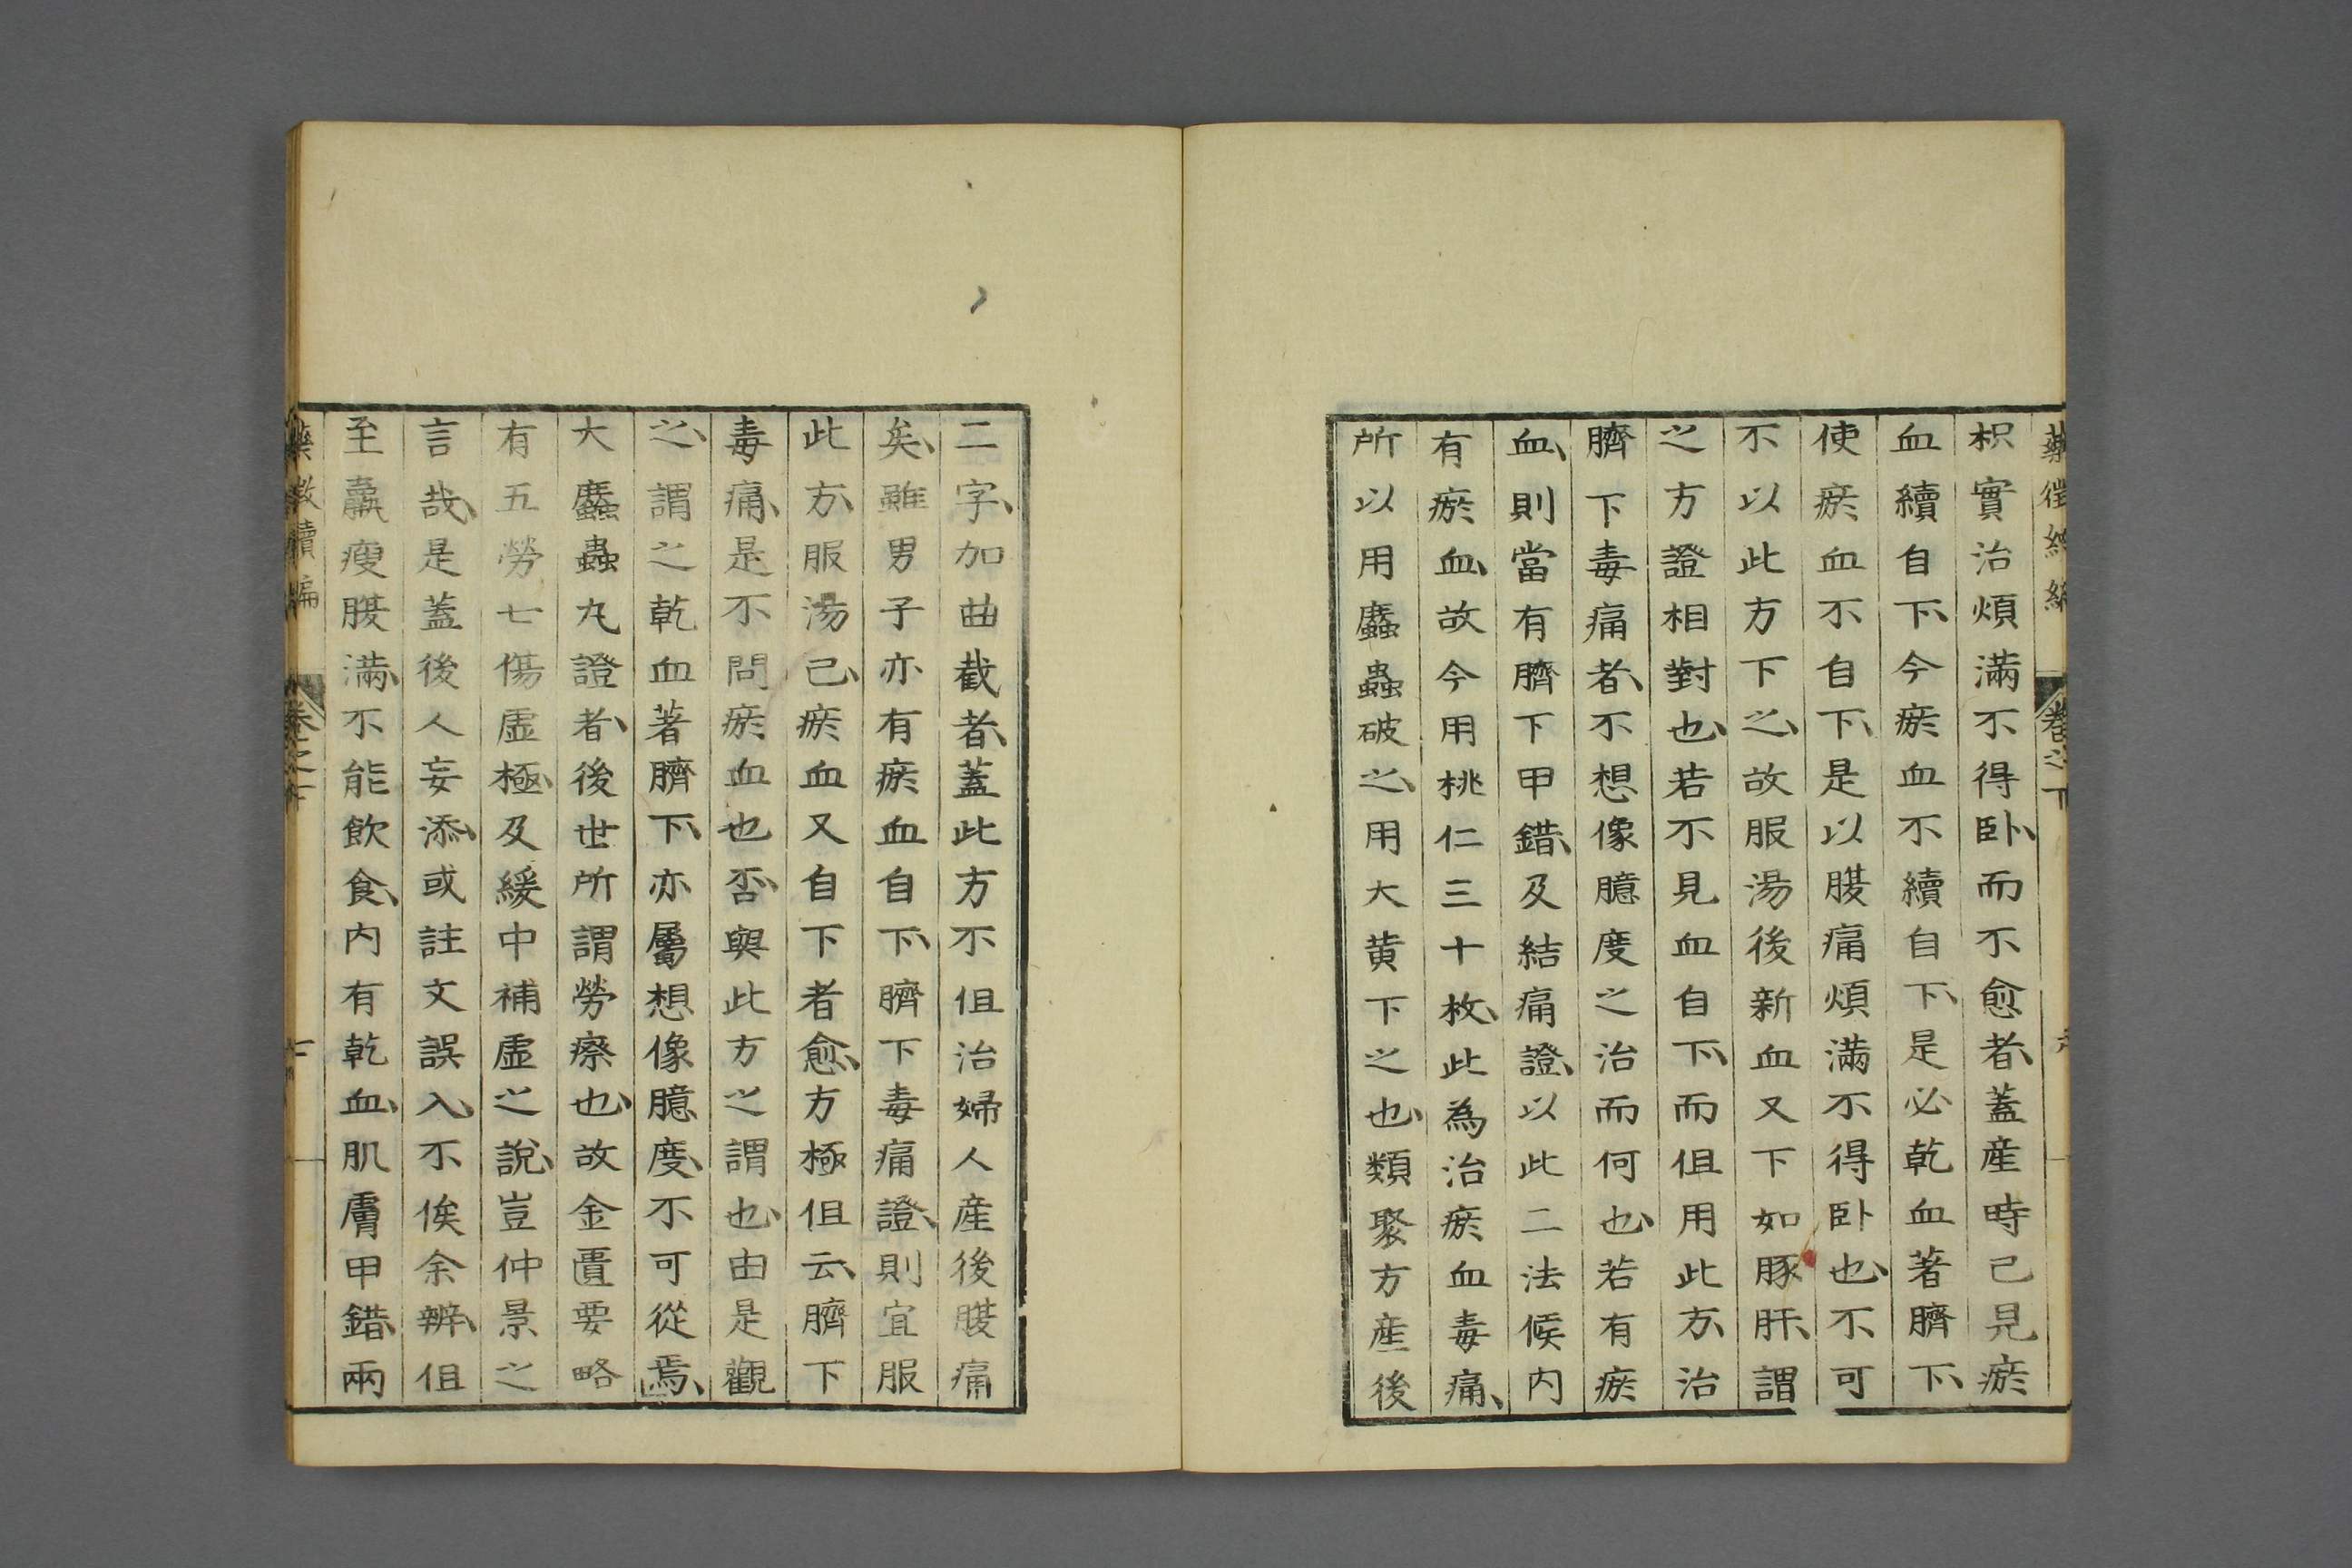 藥徴續編 卷之下
枳實治煩滿不得卧、而不愈者、蓋産時已見瘀
血續自下、今瘀血不續自下、是必乾血著臍下、
使瘀血不自下、是以腹痛煩滿不得卧也、不、可
不以此方下之、故服湯後新血又下如豚肝、謂
之方證相對也、若不見血自下、而但用此方、治
臍下毒痛者、不想像臆度之治而何也、若有瘀
血、則當有臍下甲錯、及結痛證、以此二法候内
有瘀血、故今用桃仁三十枚、此為治瘀血毒痛、
所以用䗪蟲破之、用大黄下之也、類聚方産後
二字、加曲截者、蓋此方不但治婦人産後腹痛
矣、雖男子亦有瘀血自下、臍下毒痛證、則宜服
此方、服湯已、瘀血又自下者愈、方極但云、臍下
毒痛、是不問瘀血也否、與此方之謂也、由是觀
之、謂之乾血著臍下、亦屬想像臆度、不可從焉、
大䗪蟲丸證者、後世所謂勞瘵也、故金匱要略
有五勞七傷虛極、及緩中補虛之説、豈仲景之
言哉、是蓋後人妄添、或註文誤入、不俟余辨、但
至羸瘦腹滿、不能飲食、内有乾血、肌膚甲錯、兩
藥徴續編 卷之下